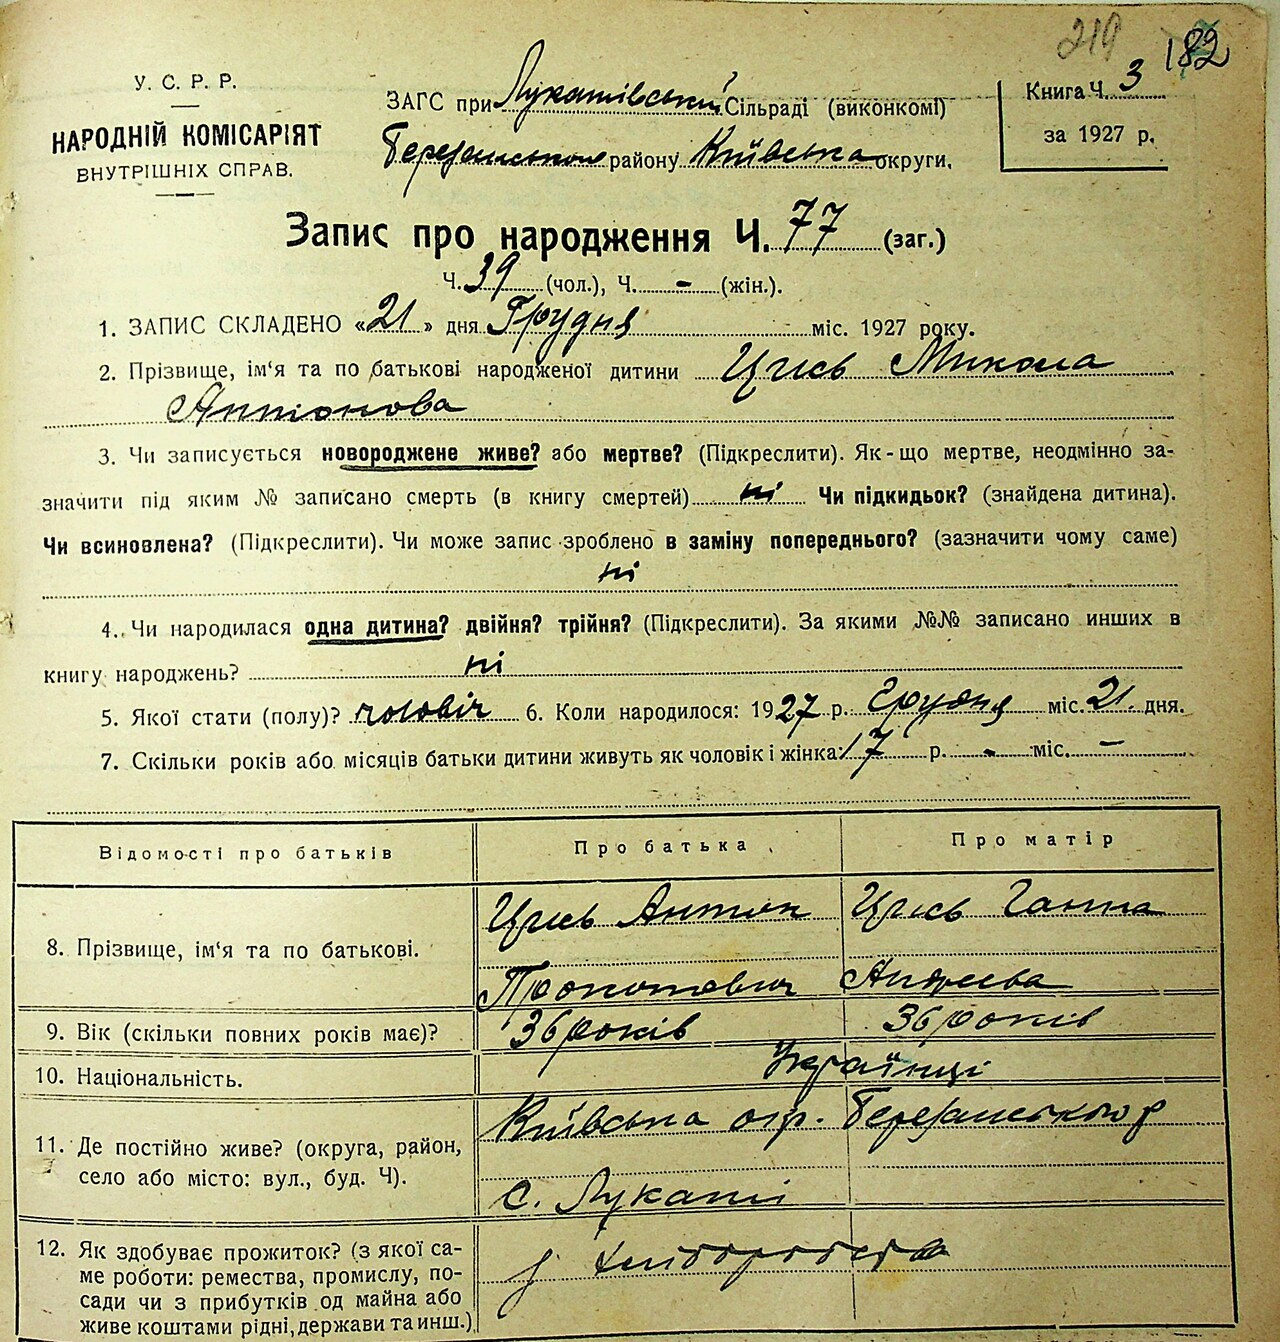 219 182
У. С. Р. Р.
НАРОДНІЙ КОМІСАРІЯТ
ВНУТРІШНІХ СПРАВ.
ЗАГС при Лукашівський Сільраді (виконкомі)
Березанського району Київська округи.
Книга Ч. 3
за 1927 р.
Запис про народження Ч. 77 (заг.)
Ч. 39 (чол.), Ч. - (жін.).
1. ЗАПИС СКЛАДЕНО «21» дня Грудня міс. 1927 року.
2. Прізвище, ім‘я та по батькові народженої дитини Цись Микола
Антонова
3. Чи записується новороджене живе? або мертве? (Підкреслити). Як-що мертве, неодмінно за-
значити під яким № записано смерть (в книгу смертей) ні Чи підкидьок? (знайдена дитина).
Чи всиновлена? (Підкреслити). Чи може запис зроблено в заміну попереднього? (зазначити чому саме)
ні
4. Чи народилася одна дитина? двійня? трійня? (Підкреслити). За якими №№ записано инших в
книгу народжень? ні
5. Якої стати (полу)? чоловіч 6. Коли народилось: 1927 р. Грудня міс. 21. дня.
7. Скільки років або місяців батьки дитини живуть як чоловік і жінка: 17 р. - міс. -
Відомості про батьків Про батька Про матір
8. Прізвище, ім‘я та по батькові. Цись Антон Прокопович Цись Ганна Андреева
9. Вік (скільки повних років має)? 36 років 36 років
10. Національність. Українці
11. Де постійно живе? (округа, район, село або місто: вул., буд. Ч). Київська окр. Березанського р
с. Лукаші
12. Як здобуває прожиток? (з якої са-
ме роботи: ремества, промислу, по-
сади чи з прибутків од майна або
живе коштами рідні, держави та инш.) з хліборобства